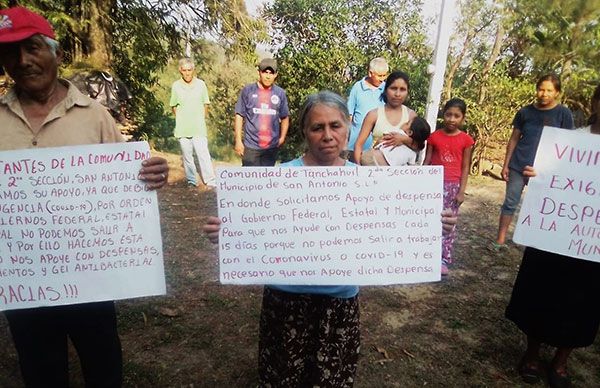 TANTES DE LA COMUNIDAD
2ª SECCIÓN, SAN ANTONIO
SU APOYO, YA QUE DEBIDO
GENCIA (COVID-19), POR ORDEN
IERNOS FEDERAL, ESTATAL
AL NO PODEMOS SALIR A
Y POR ELLO HACEMOS ESTA
NOS APOYE CON DESPENSAS,
MENTOS Y GEL ANTIBACTERIAL
RACIAS!!!
Comunidad de Tanchahuil 2ª Sección del
Municipio de San Antonio S.L.P
En donde Solicitamos Apoyo de despensa
al Gobierno Federal, Estatal y Municipal
Para que nos Ayude con Despensas Cada
15 días porque no podemos Salir a trabajar
con el Coronavirus o covid-19 y es
necesario que nos Apoye dicha Despensa
VIVIR
EXIG
DESPE
A LA AUTO
MUNI